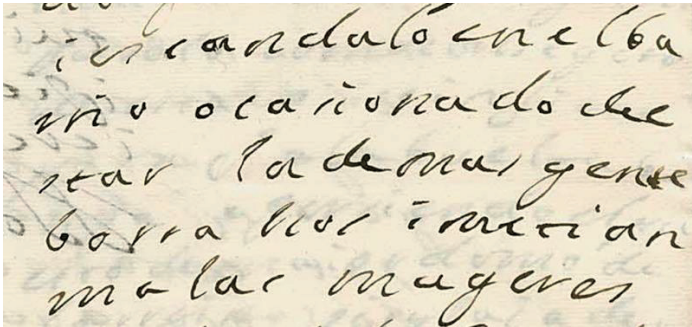 escandalo en el ba
rrio ocacionado de e
star la demas gente
borrachos i metian
malas mugeres